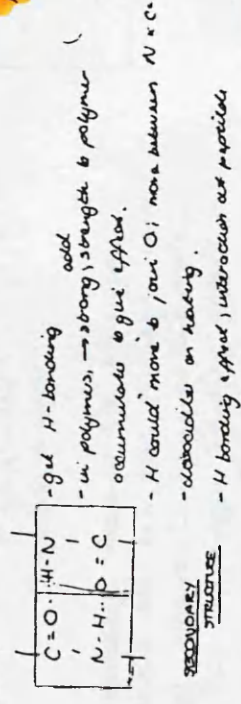 C = O ··· H - N
N - H ··· O = C
- get H-bonding
- in polymers, → strong, add strength to polymer
accumulate to give effect.
- H could move to join O; move between N & C=
- dissociates on heating.
SECONDARY
STRUCTURE
- H bonding effect, interaction of peptide